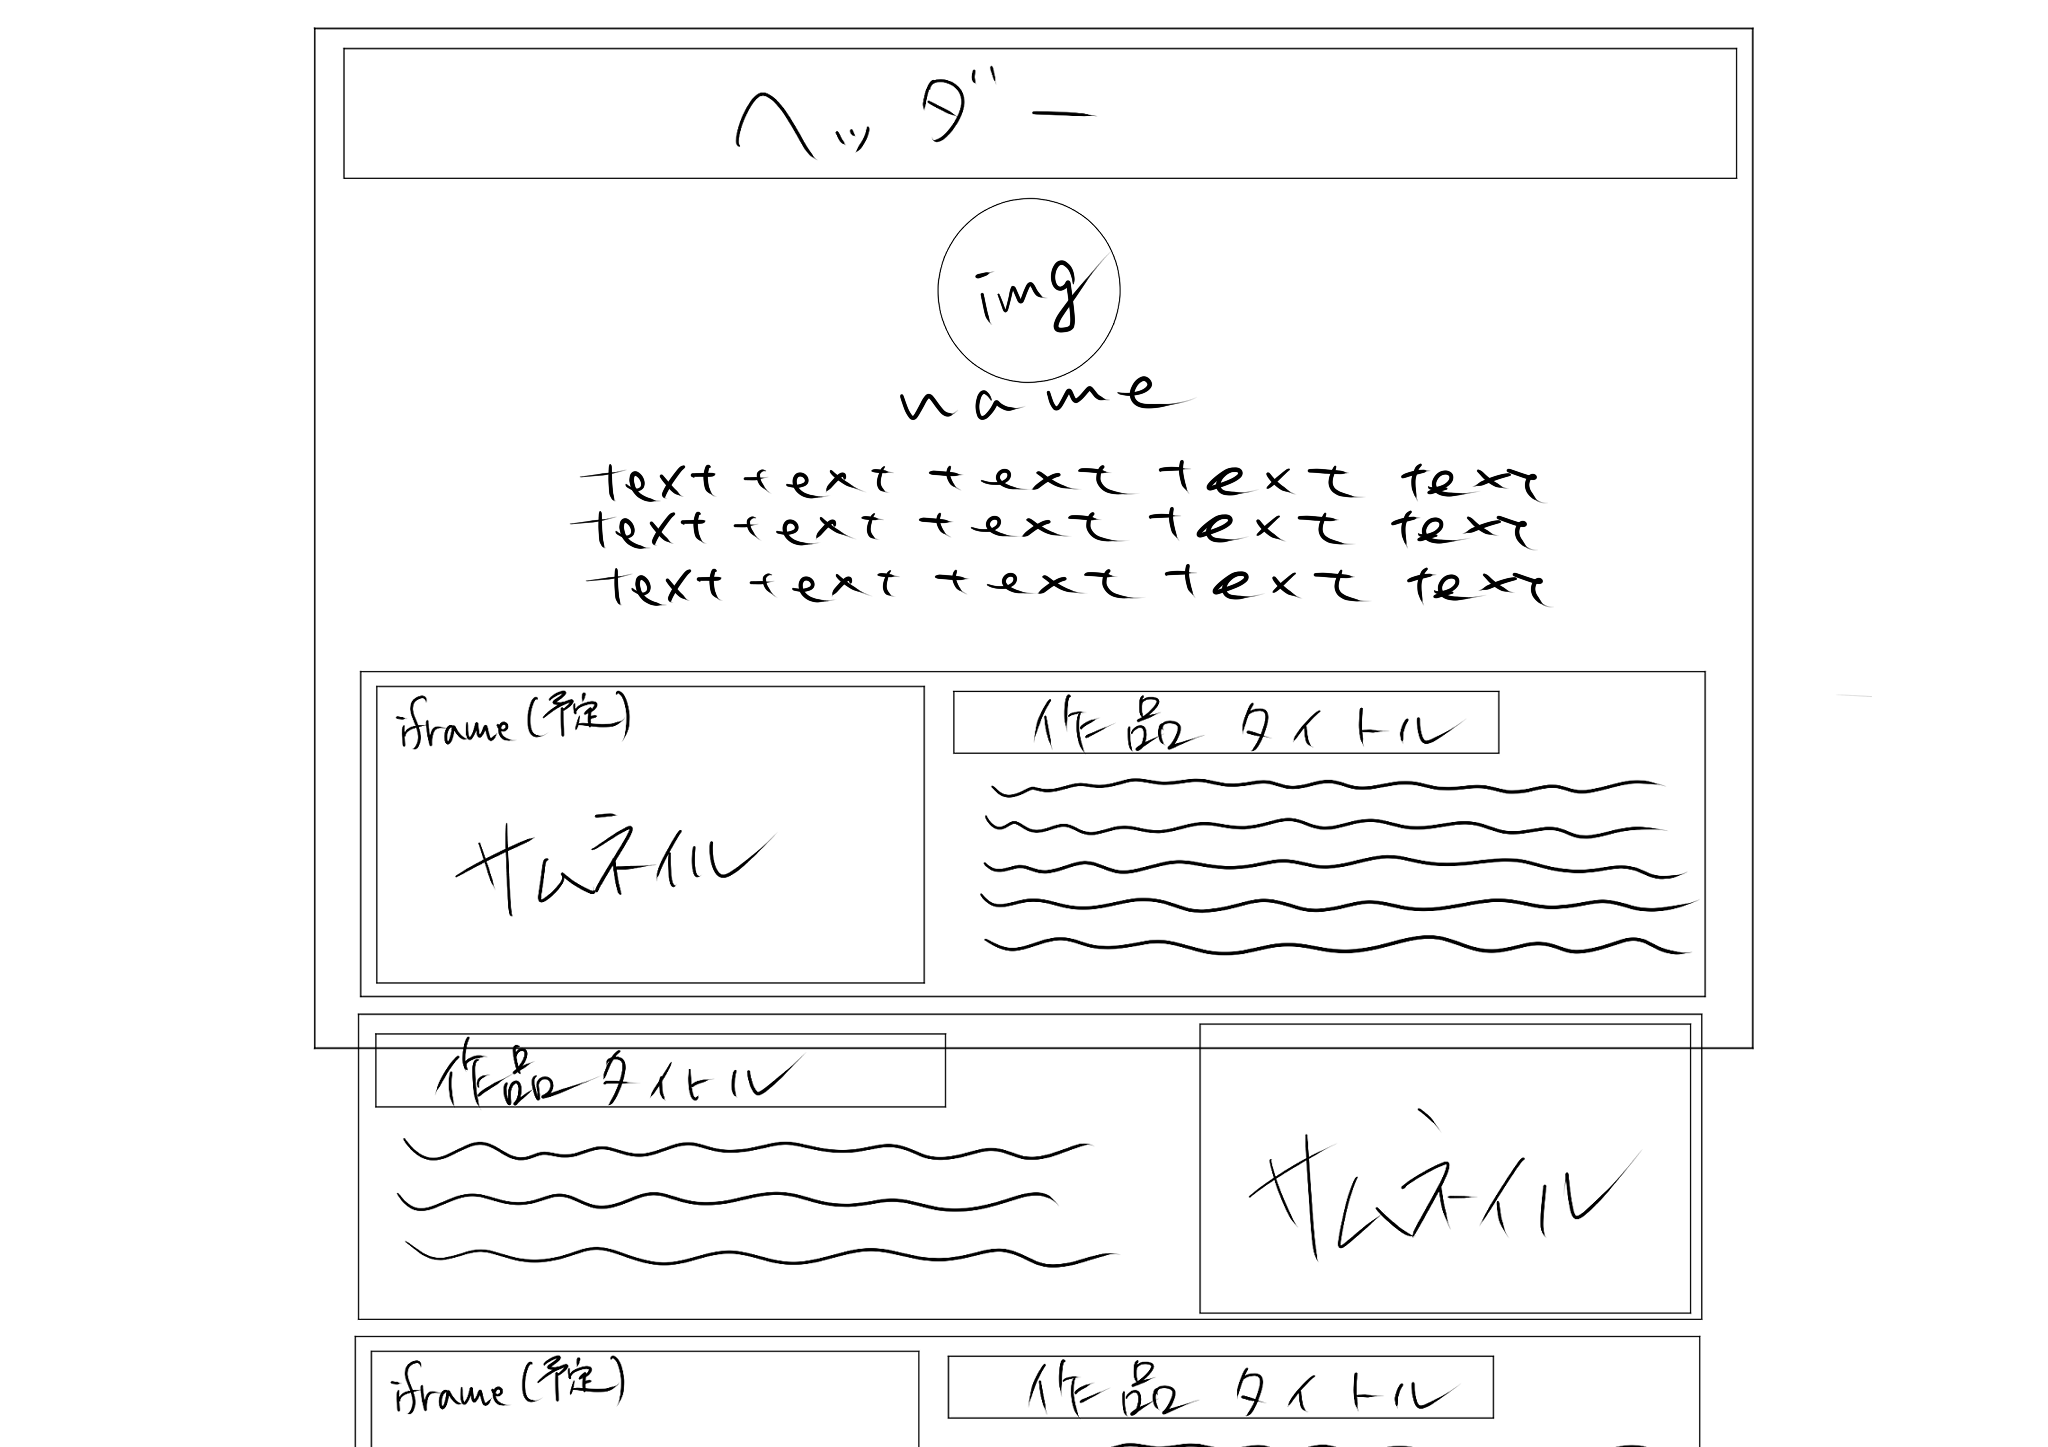 ヘッダー
img
name
text text text text text
text text text text text
text text text text text
iframe(予定)
サムネイル
作品 タイトル
作品タイトル
サムネイル
iframe(予定)
作品 タイトル